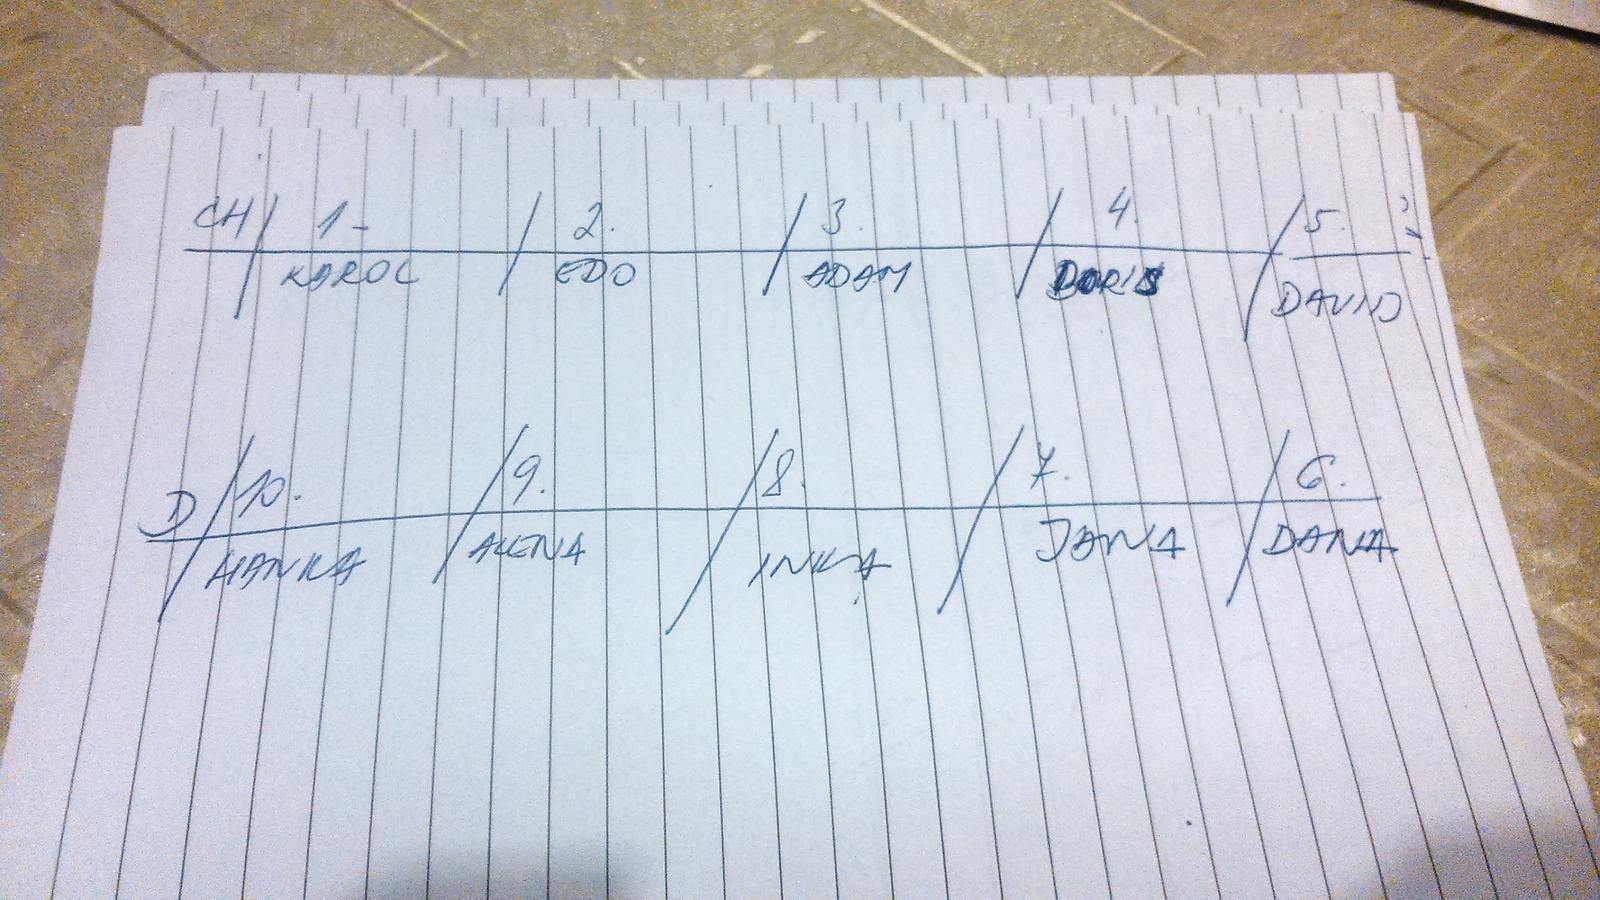 CH 1. 2. 3. 4. 5.
KAROL EDO ADAM BORIS DAVID
D 10. 9. 8. 7. 6.
HANKA ALENA INKA JANA DANA